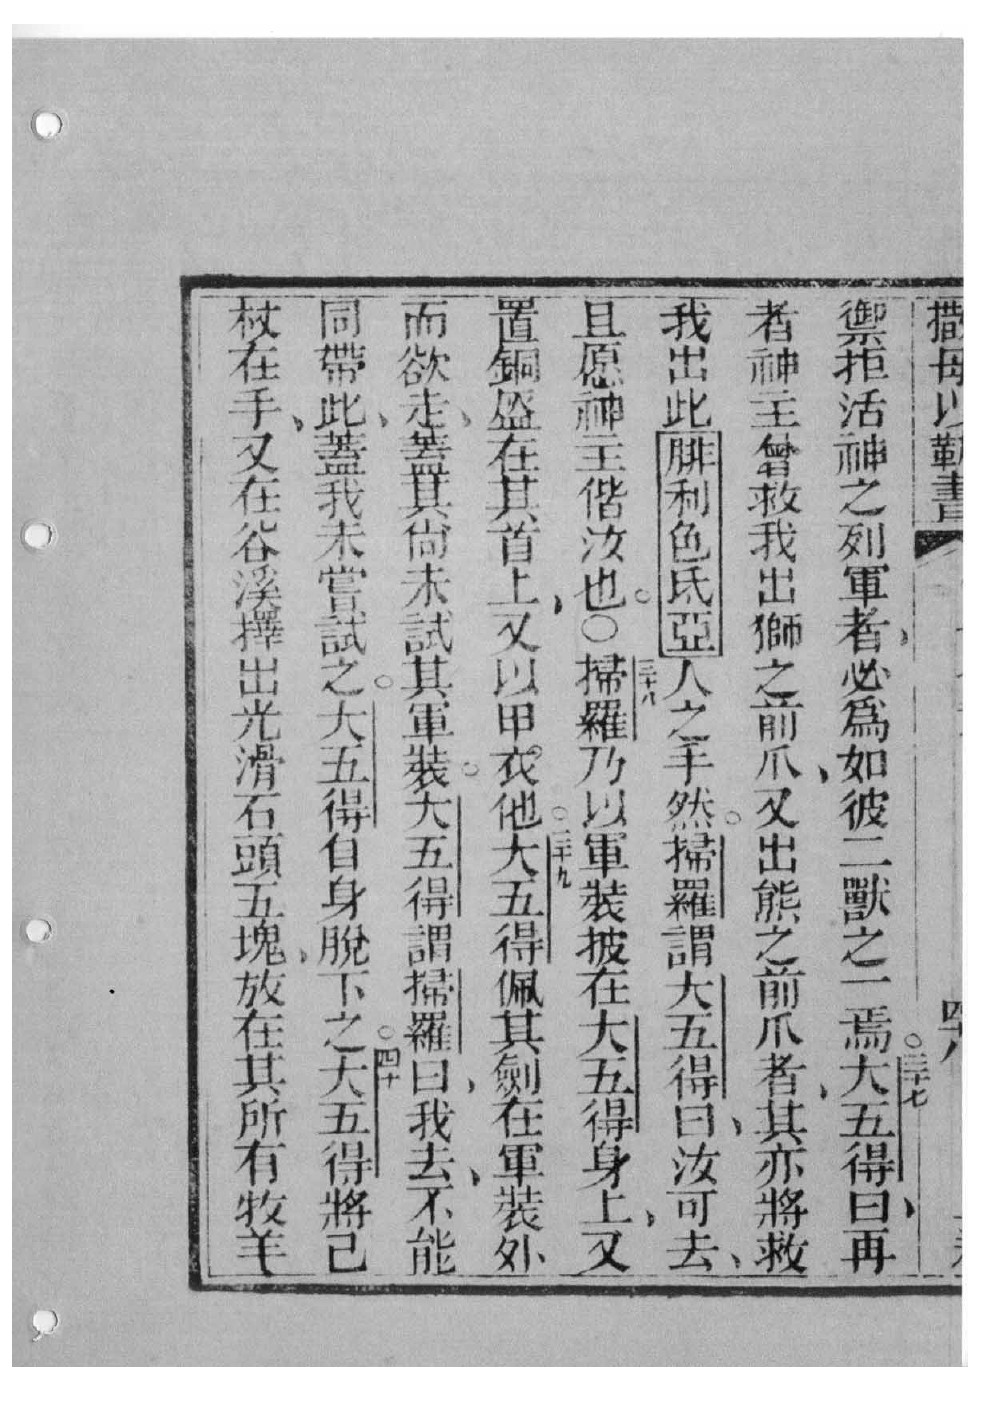 撒母以勒書
四八
禦拒活神之列軍者、必爲如彼二獸之一焉。三十七大五得曰、再
者神主曾救我出獅之前爪、又出熊之前爪者、其亦將救
我出此腓利色氏亞人之手然。掃羅謂大五得曰、汝可去、
且愿神主偕汝也。○三十八掃羅乃以軍裝披在大五得身上、又
置銅盔在其首上、又以甲衣他。三十九大五得佩其劍在軍裝外
而欲走、蓋其尙未試其軍裝。大五得謂掃羅曰、我去、不能
同帶此、蓋我未嘗試之。大五得自身脫下之。四十大五得將己
杖在手、又在谷溪擇出光滑石頭五塊、放在其所有牧羊